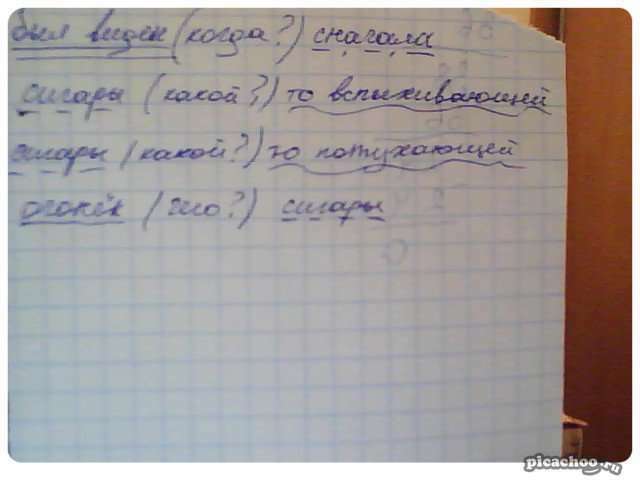 был виден (когда?) сначала
сигары (какой?) то вспыхивающей
сигары (какой?) то потухающей
огонёк (чего?) сигары
picachoo.ru